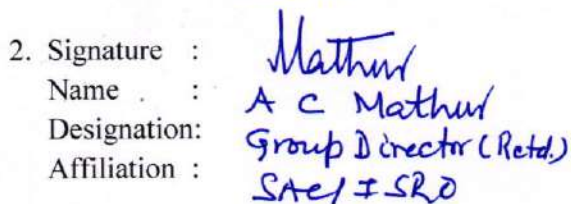 2. Signature : Mathur
Name : A C Mathur
Designation: Group Director (Retd.)
Affiliation : SAC/ISRO